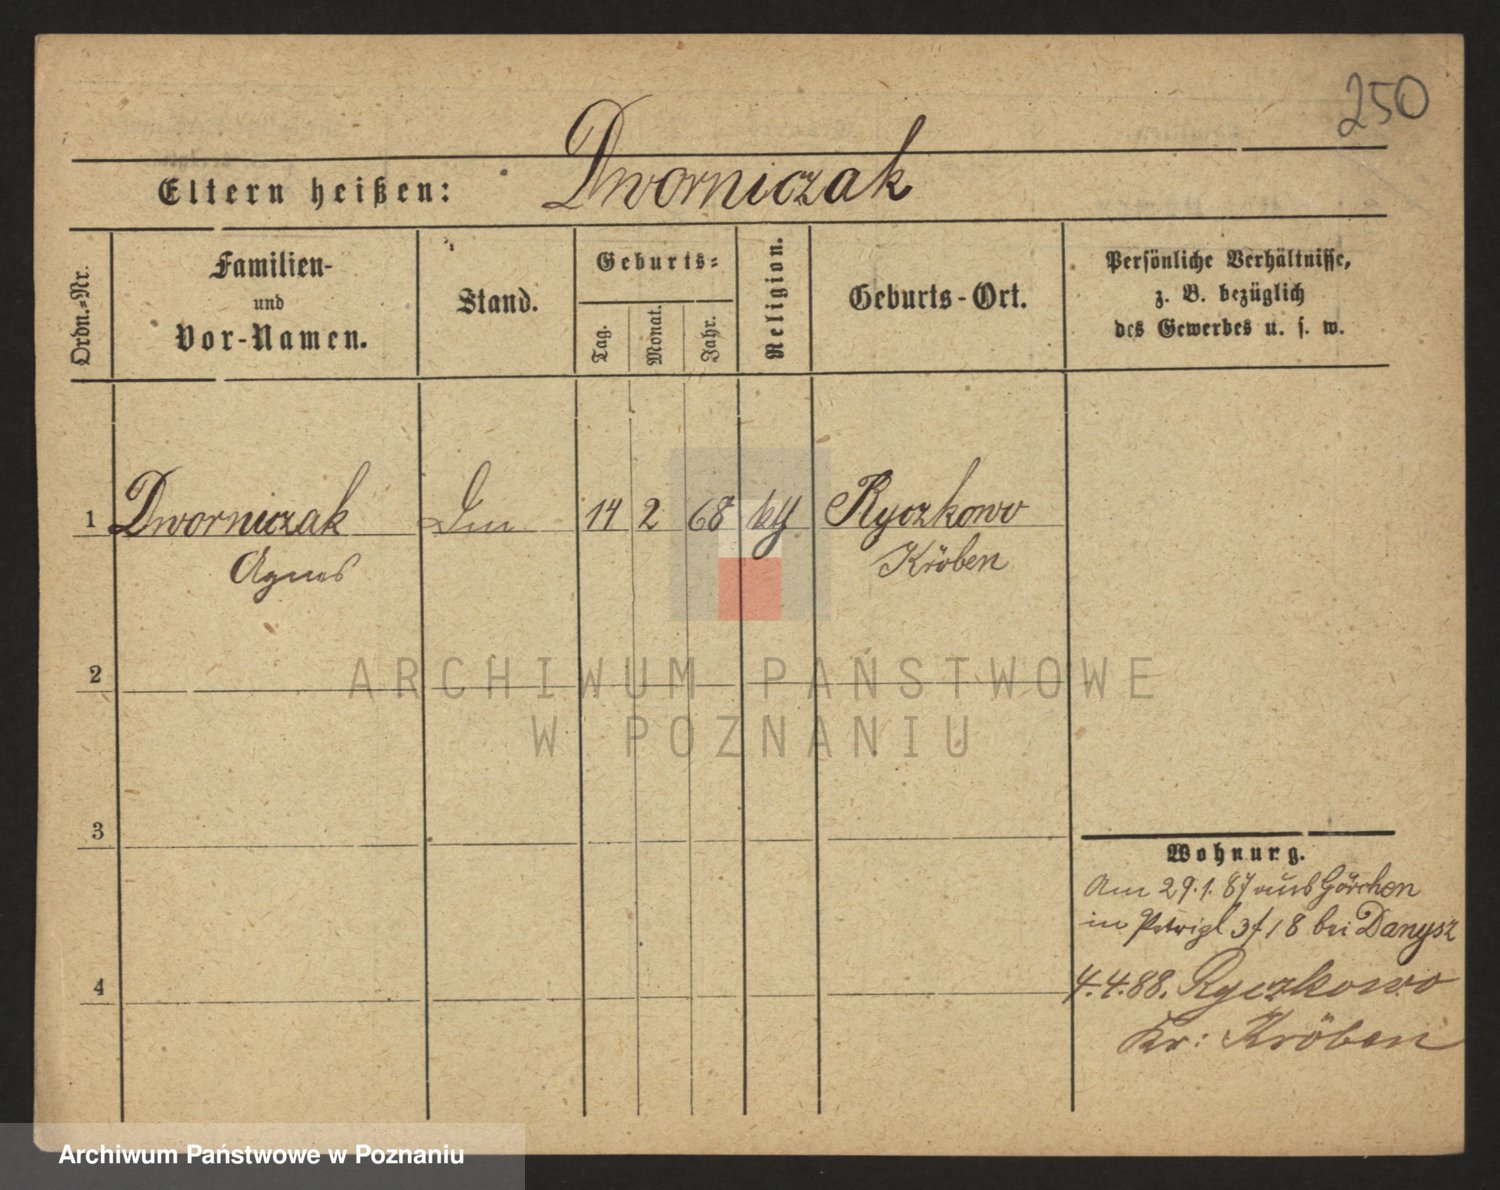 250
Eltern heißen: Dworniczak
Ordn.-Nr.
Familien-
und
Vor-Namen.
Stand.
Geburts=
Tag.
Monat.
Jahr.
Religion.
Geburts-Ort.
Persönliche Verhältnisse,
z. B. bezüglich
des Gewerbes u. s. w.
1 Dworniczak 14 2 68 Ryczkowo
Agnes Kröben
2
3
4
Wohnung.
Am 29.1.87 aus Görchen
in 18 bei Danysz
4.4.88. Ryczkowo
Kr: Kröben
ARCHIWUM PAŃSTWOWE
W POZNANIU
Archiwum Państwowe w Poznaniu